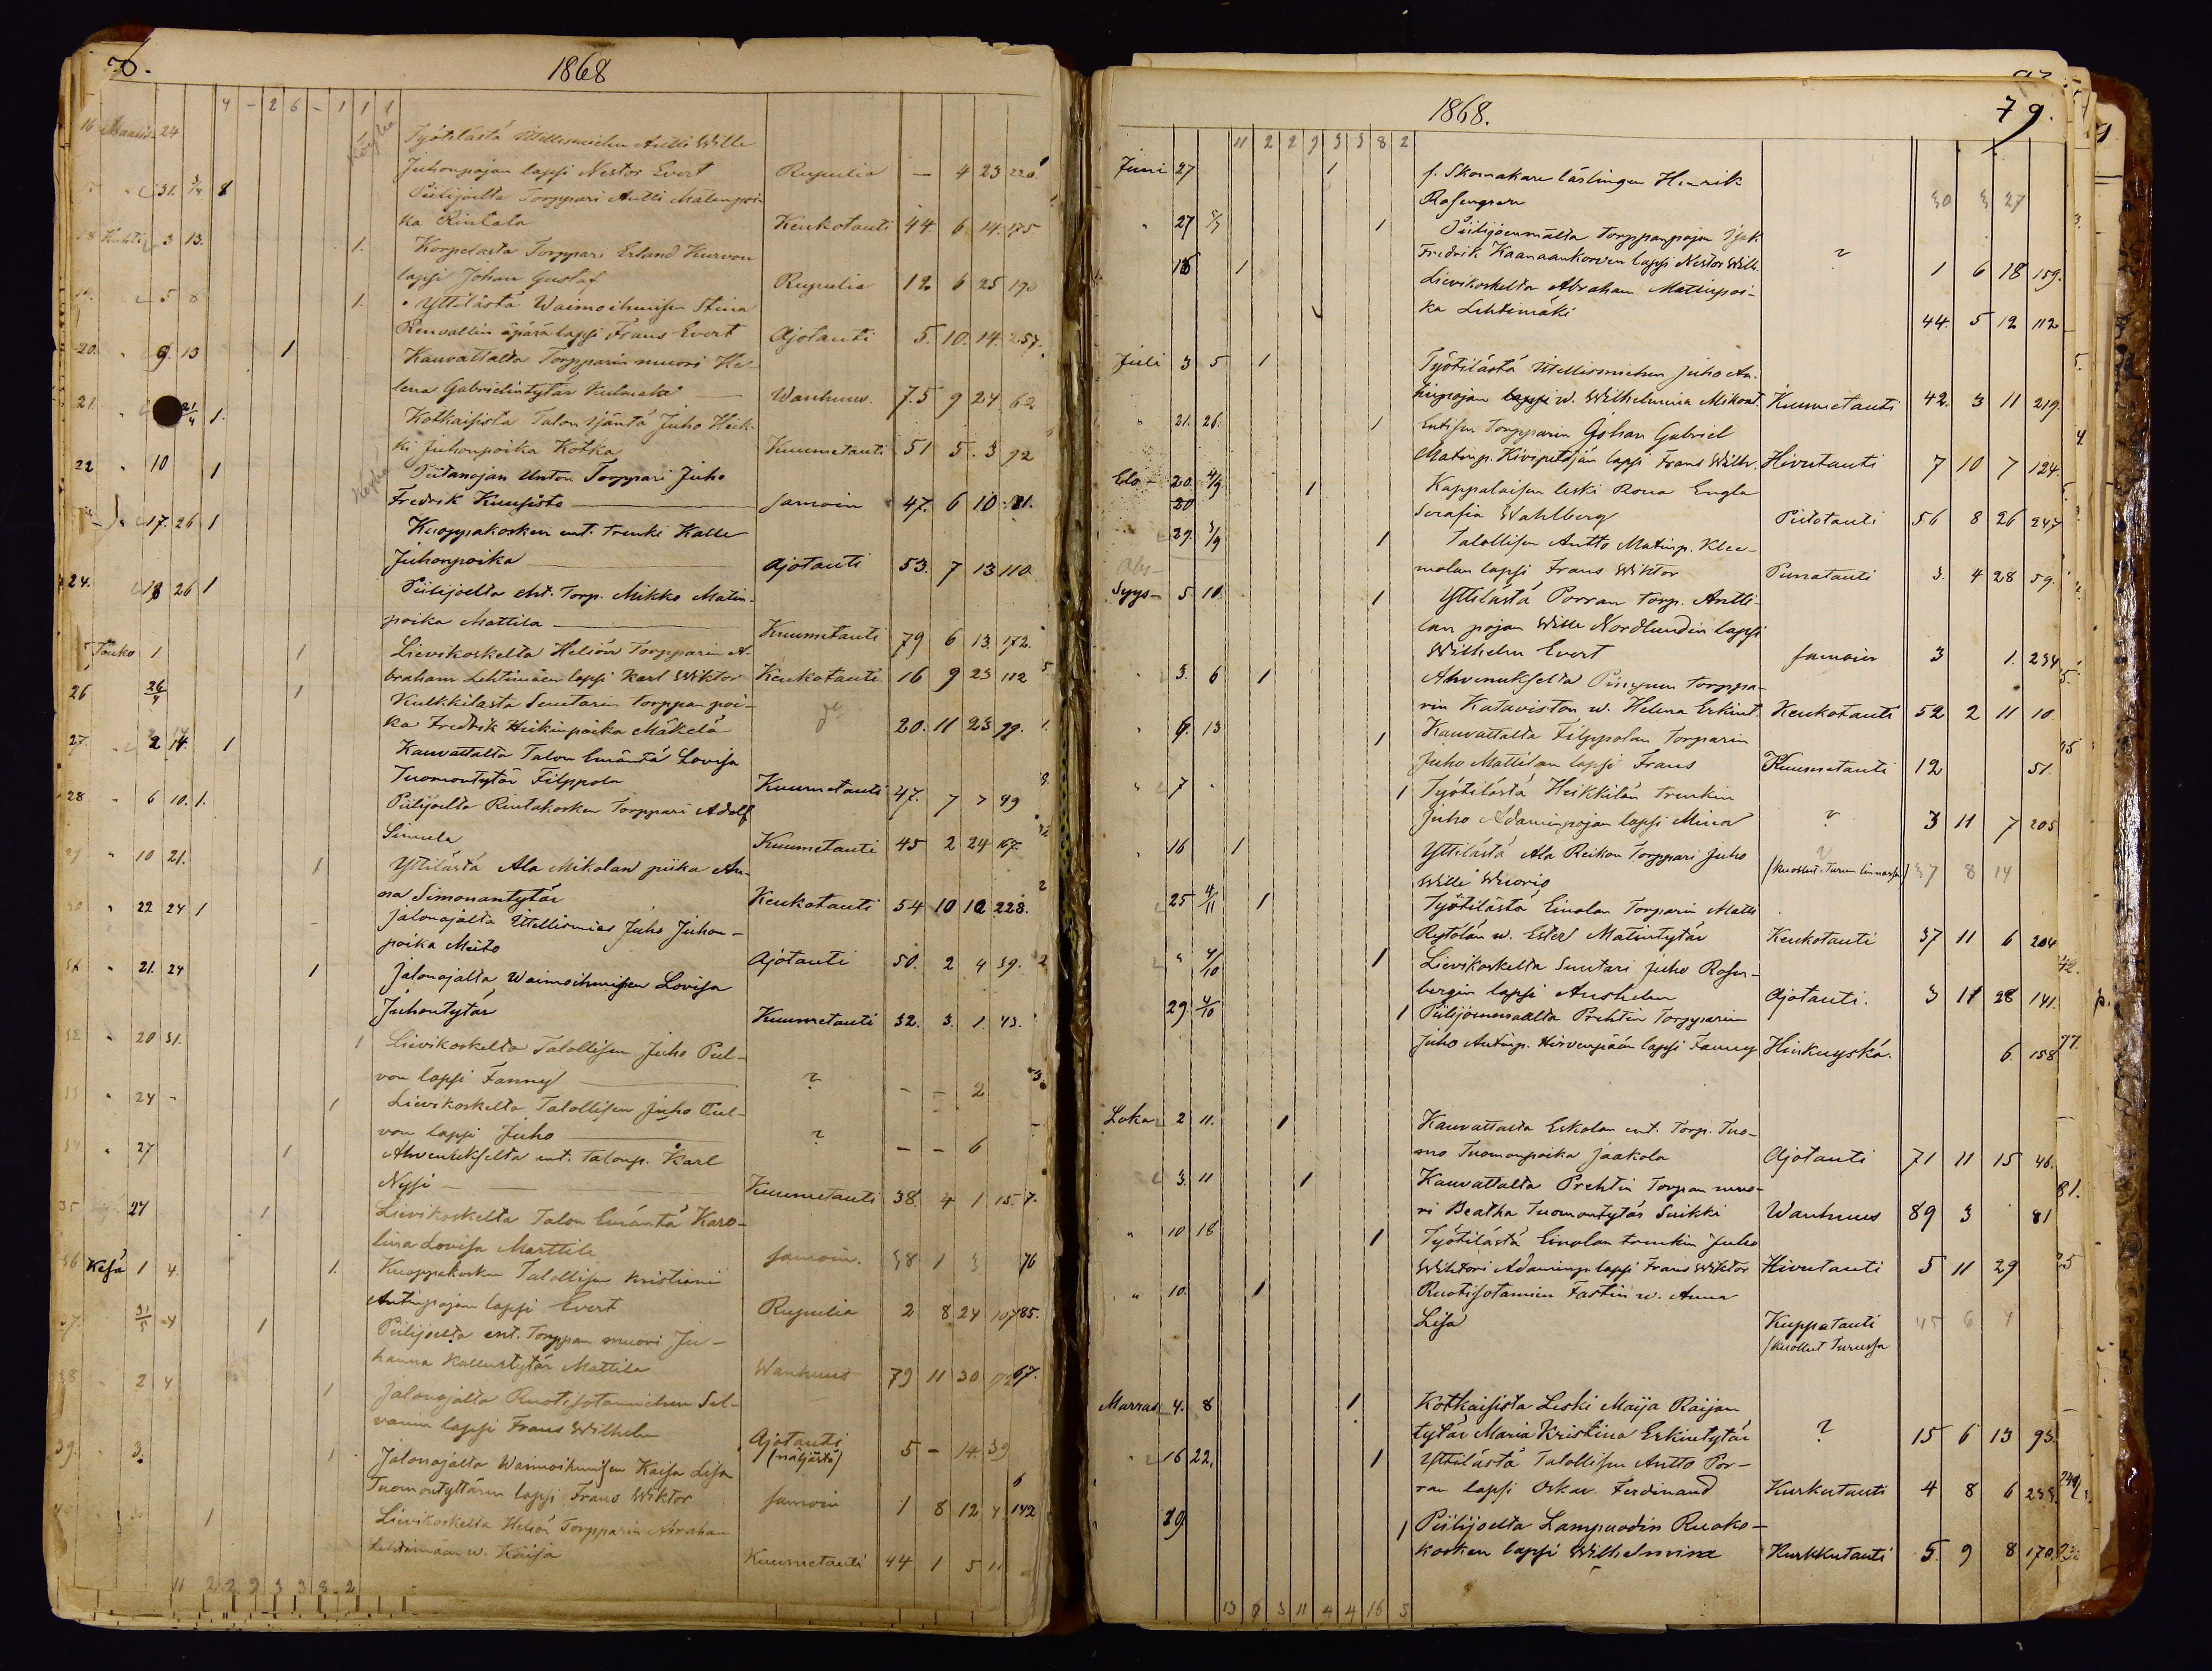 1868
4 - 2 6 - 1 1 1
16 Maalis 24 1 Työtilästä Itellismiehen Antti Wille
Juhonpojan lapsi Nestor Evert Rupulia — 4 23 220
31. 3/4 1 Piilijoelta Torppari Antti Matinpoi-
ka Rintala Keukotauti 44. 6. 14. 175
18 Huhti 3 13. 1. Korpelasta Torppari Erland Kurvon
lapsi Johan Gustaf Rupulia 12 6 25 190
5 8 1. Yttilästä Waimoihmisen Stina
Renvallin äpärä lapsi Frans Evert Ajotauti 5. 10. 14. 257.
20. " 9. 13 1 Kauvattalta Torpparin muori He-
lena Gabrielintytär Kulmala Wanhuus. 75 9 24 62
21. 21/4 1. Kotkaisista Talon Isäntä Juho Heik-
ki Juhonpoika Kotka Kuumetauti 51 5. 3 92
22 " 10 1 Piitanojan Unton Torppari Juho
Fredrik Kuusisto — samoin 47. 6 10 181.
17. 26 1 Kuoppakosken ent. trenki Kalle
Juhonpoika — Ajotauti 53. 7 13 110
24. 18 26 1 Piilijoelta ent. Torp. Mikko Matin-
poika Mattila — Kuumetauti 79 6 13. 172.
Touko 1 1 Lievikoskelta Heliön Torpparin A-
braham Lehtimäen lapsi Karl Wiktor Keukotauti 16 9 23 112
26 26/4 1 Kulkkilasta Suutarin torppan poi-
ka Fredrik Heikinpoika Mäkelä do 20. 11 23 99.
27. 2 14 1 Kauvattalta Talon Emäntä Lovisa
Tuomontytär Filppola Kuumetauti 47. 7 7 49
28 " 6 10. 1. Piilijoelta Rintakosken Torppari Adolf
Simula Kuumetauti 45 2 24 167.
29 " 10 21. 1 Yttilästä Ala Mikolan piika An-
na Simonantytär Keukotauti 54 10 10 228.
30 " 22 24 1 Jalonojalta Itellismies Juho Juhon-
poika Meito Ajotauti 50. 2 4 39.
" 21. 24 1 Jalonojalta Waimoihmisen Lovisa
Juhontytär Kuumetauti 32. 3. 1 43.
32 " 20 31. 1 Lievikoskelta Talollisen Juho Pul-
von lapsi Fanny — ? - - 2
33 " 24 - 1 Lievikoskelta Talollisen Juho Pul-
von lapsi Juho — ? - - 6
34 " 27 1 Ahvenukselta ent. Talonp. Karl
Nysi — Kuumetauti 38. 4 1 15. 7.
35 27 1 Lievikoskelta Talon Emäntä Karo-
lina Lovisa Marttila samoin. 38 1 3 76
36 Kesä 1 4. 1. Kuoppakosken Talollisen Kristiani
Antinpojan lapsi Evert Rupulia 2 8 24 107 85.
37. 31/5 4 1 Piilijoelta ent. Torppan muori Ju-
hanna Kallentytär Mattila Wanhuus 79 11 30 172 67.
38 2 4 1 Jalonojalta Ruotisotamiehen Sal-
vanin lapsi Frans Wilhelm Ajotauti (näljästä) 5 - 14. 39
39. " 3. 1 Jalonojalta Waimoihmisen Kaisa Lisa
Tuomontyttären lapsi Frans Wiktor samoin 1 8 12 4 142
1 Lievikoskelta Heliön Torpparin Abraham
Lehtimäen w. Kaisa Kuumetauti 44 1 5 11
11 2 2 9 3 3 8 2
1868.
79.
11 2 2 9 3 3 8 2
Juni 27 1 f. Skomakare lärlingen Henrik
Rosengren 30 3 27
" 27 5/7 1 Piilijoenmaalta Torppanpojan Isak
Fredrik Kaanaankorven lapsi Nestor Wilh. ? 1 6 18 159.
18 1 Lievikoskelta Abraham Matinpoi-
ka Lehtimäki 44. 5 12 112
Juli 3 5 1 Työtilästä Itellismiehen Juho An-
tinpojan lapsi w. Wilhelmina Mikont. Kuumetauti 42. 3 11 219.
" 21. 26. 1 Entisen Torpparin Johan Gabriel
Matinp. Kivipetäjän lapsi Frans Wilh. Hivutauti 7 10 7 124
Elo- 20. 4/9 1 Kappalaisen leski Rova Engla
20 Serafia Wahlberg Pistotauti 56 8 26 247
29. 3/9 1 Talollisen Antto Matinp. Klee-
molan lapsi Frans Wiktor Punatauti 3. 4 28 59.
Syys- 5 10. 1 Yttilästä Porran Torp. Antti-
lan pojan Wille Nordlundin lapsi
Wilhelm Evert samoin 3 1. 234
3. 6 1 Ahvenukselta Pinipuun torppa-
rin Kataviston w. Helena Erkint. Keukotauti 52 2 11 10.
" 9. 13 1 Kauvattalta Filppolan Torparin
Juho Mattilan lapsi Frans Kuumetauti 12 51.
7 - 1 Työtilästä Heikkilän trenkin
Juho Adaminpojan lapsi Mina ? 3 11 7 205
16 1 Yttilästä Ala Reikon Torppari Juho
Wille Wuorio (kuollut Turun linnassa) 37 8 14
25 4/11 1 Työtilästä Einolan Torparin Matti
Rytölän w. Ester Matintytär Keukotauti 37 11 6 204
" 4/10 1 Lievikoskelta Suutari Juho Rosen-
bergin lapsi Anshelm Ajotauti. 3 11 28 141.
29 4/10 1 Piilijoenmaalta Prehtin Torpparin
Juho Antinp. Hirvenpään lapsi Fanny Hinkuyskä. 6. 158
Loka 2 11. 1 Kauvattalta Eskolan ent. Torp. Tuo-
mo Tuomonpoika Jaakola Ajotauti 71 11 15 46.
3. 11 1 Kauvattalta Prehtin Torpan muo-
ri Beatha Tuomontytär Suikki Wanhuus 89 3 81
" 10 18 1 Työtilästä Einolan trenkin Juho
Wihtori Adaminp. lapsi Frans Wiktor Hivutauti 5 11 29
" 10. 1 Ruotisotamien Fastin w. Anna
Lisa Kuppatauti 45 6 4
(kuollut Turussa
Marras 4. 8 1 Kotkaisista Leski Maija Raijan
tytär Maria Kristina Erkintytär ? 15 6 13 93.
16 22. 1 Yttilästä Talollisen Antto Por-
ran lapsi Oskar Ferdinand Kurkutauti 4 8 6 233.
29 1 Piilijoelta Lampuodin Ruoko-
kosken lapsi Wilhelmina Kurkkutauti 5. 9 8 170.
13 8 3 11 4 4 16 5